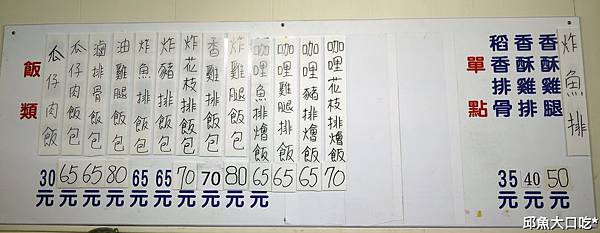 飯類
瓜仔肉飯 30元
瓜仔肉飯包 65元
滷排骨飯包 65元
油雞腿飯包 80元
炸魚排飯包 65元
炸豬排飯包 65元
炸花枝排飯包 70元
香雞排飯包 70元
炸雞腿飯包 80元
咖哩魚排燴飯 65元
咖哩雞腿排飯 65
咖哩豬排燴飯 65
咖哩花枝排燴飯 70
單點
稻香排骨 35元
香酥雞排 40元
香酥雞腿 50元
炸魚排
邱魚大口吃*